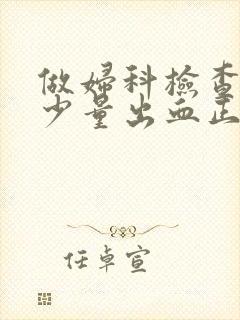 做婦科檢查
少量出血正
任卓宣